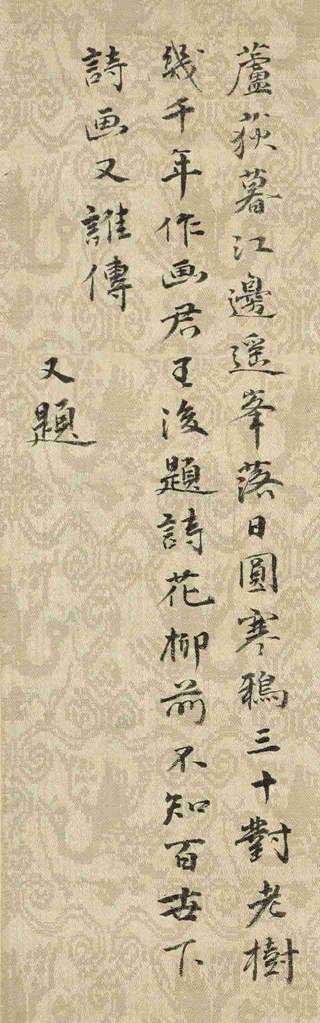 蘆荻暮江邊遥峯落日圓寒鵶三十對老樹
幾千年作画君王後題詩花柳前不知百世下
詩画又誰傳
又題